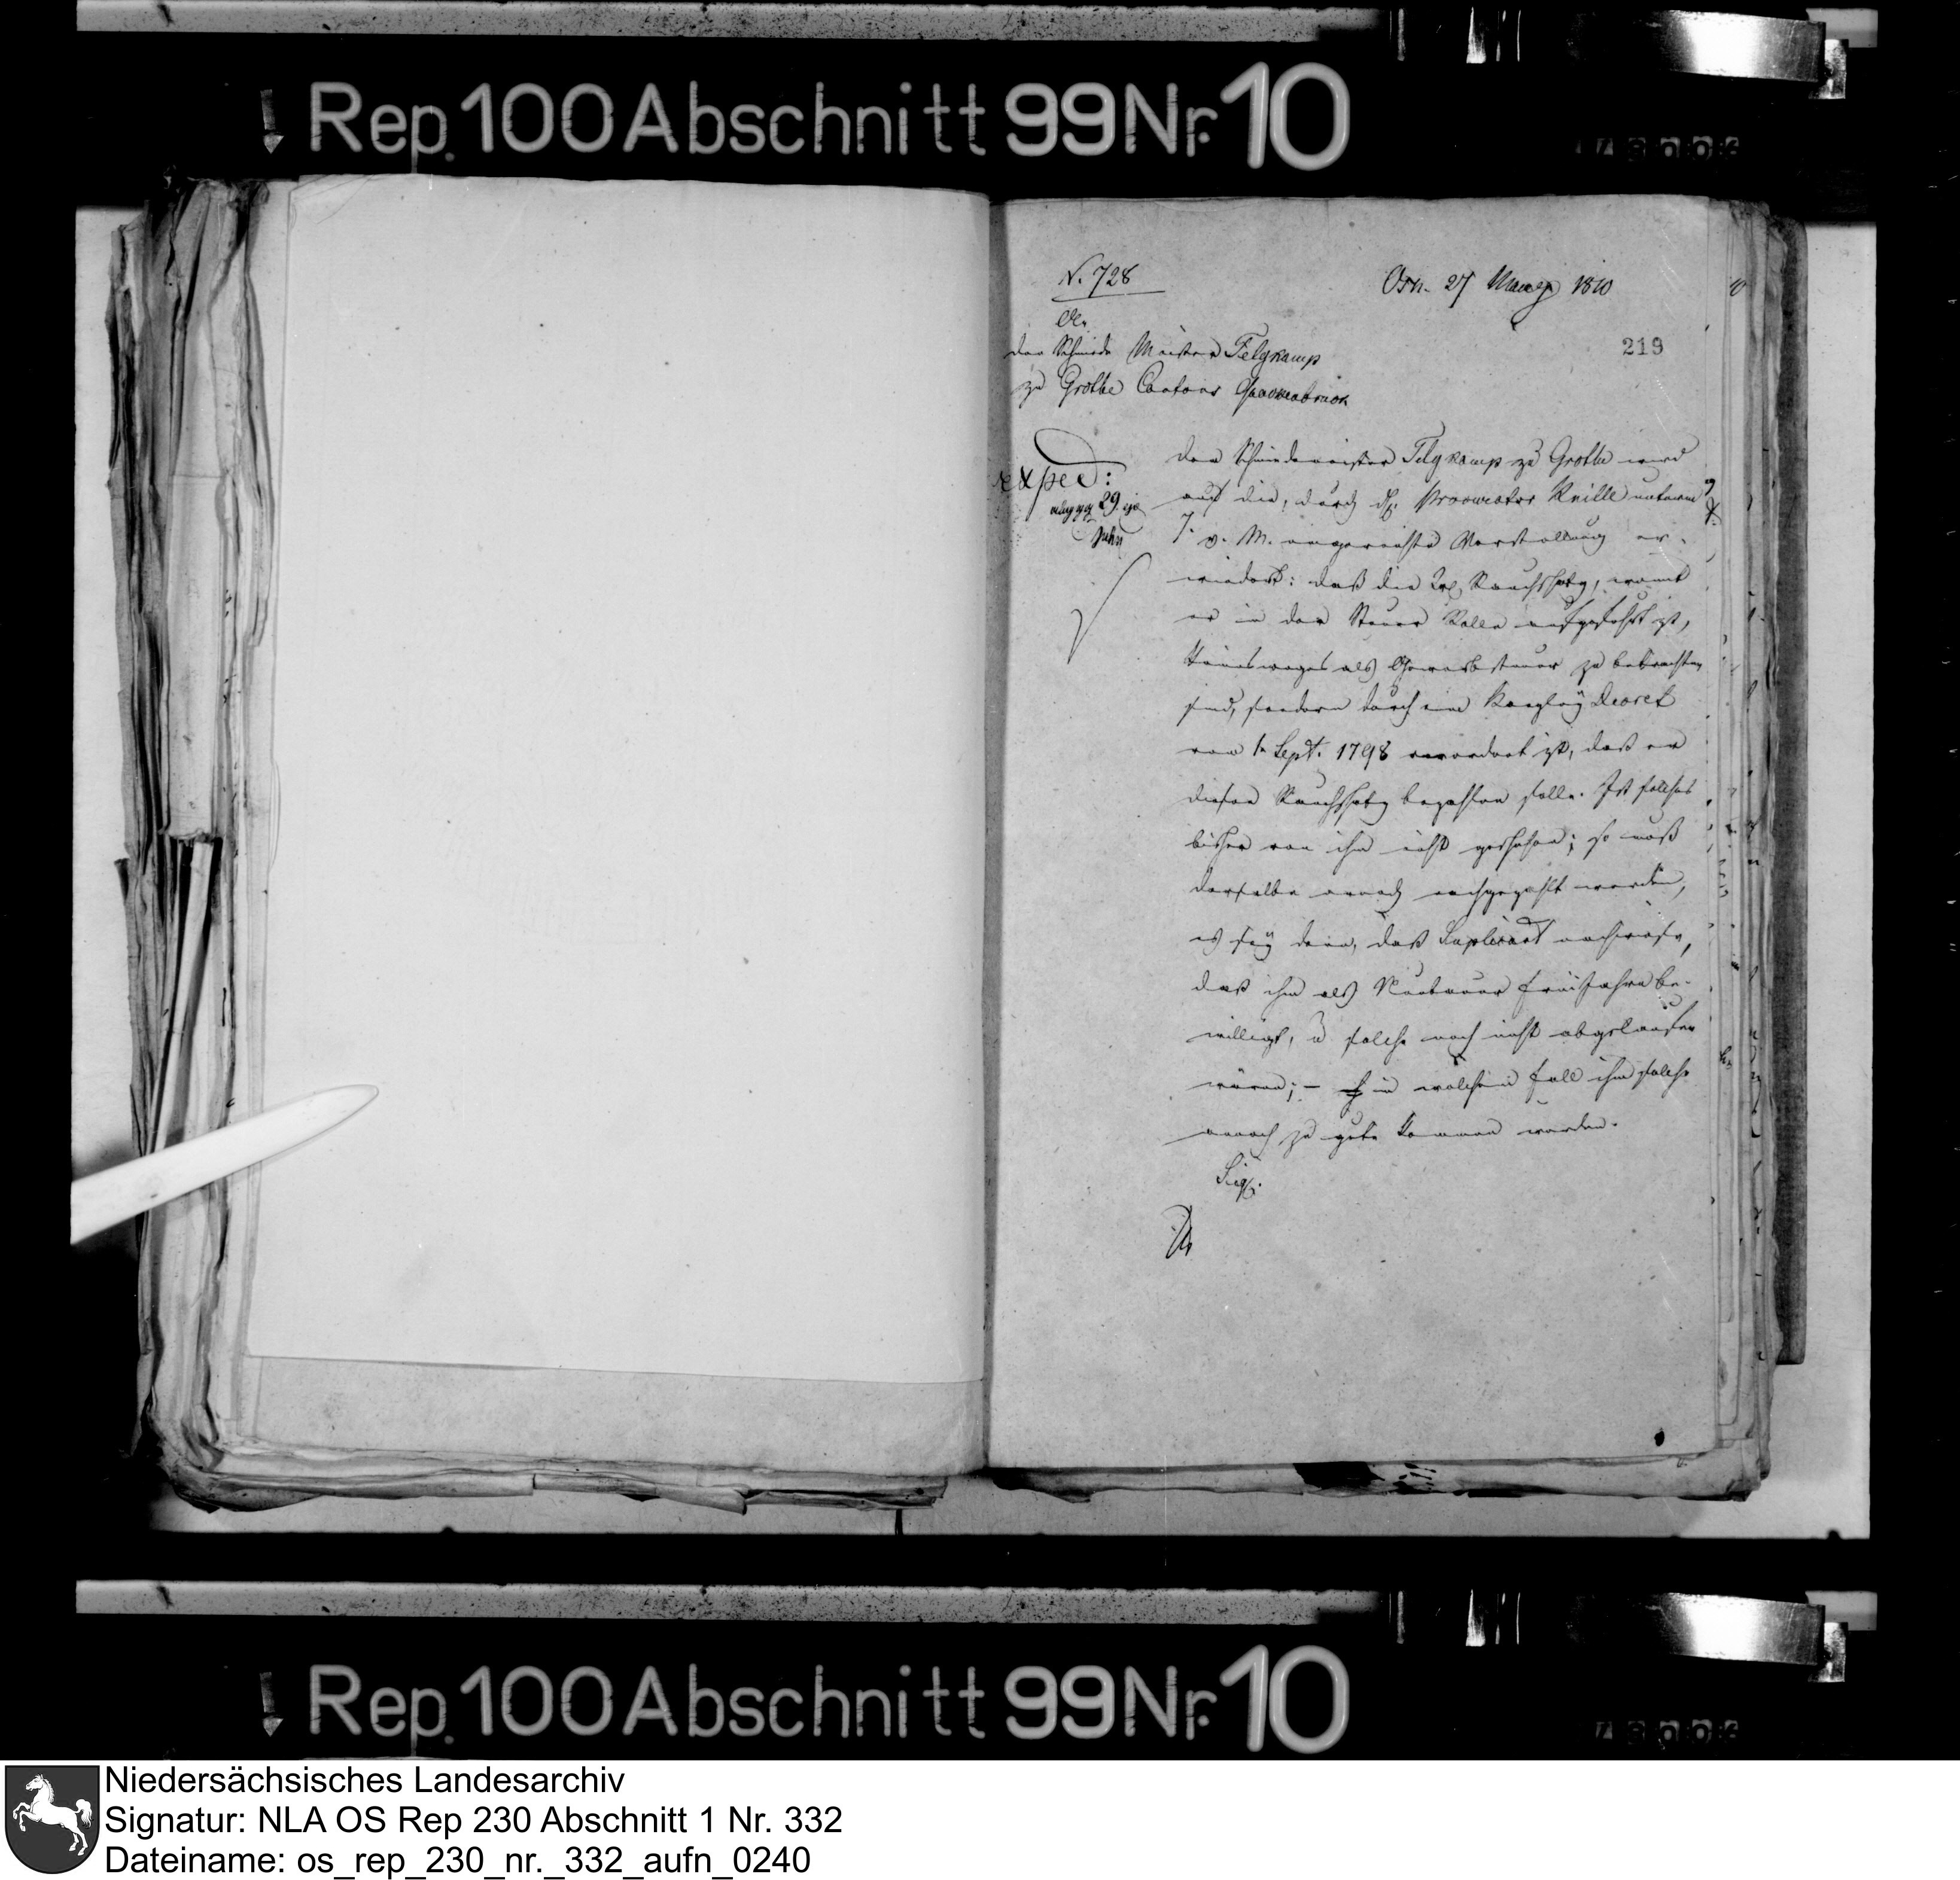 Rep. 100 Abschnitt 99 Nr. 10
N. 728
Osn. 27 Merz 1810
219
An
den Schmiede Meister Telgkamp
zu Grothe Cantons Quakenbrück
exped:
29. ej.
Dem Schmiedemeister Telgkamp zu Grothe wird
auf die, durch den Procurator Knille unterm
7. v. M. eingereichte Vorstellung er-
wiedert: daß die Rauchschatz, womit
er in der Steuer Rolle aufgeführt ist,
keinesweges als Gewerbsteuer zu betrachten
sind, sondern durch ein Kanzley Decret
vom 1n Sept. 1798 verordnet ist, daß er
diesen Rauchschatz bezahlen solle. Ist solches
bisher von ihm nicht geschehen; so muß
derselbe annoch nachgezahlt werden,
es sey denn, daß Suplicant nachweise,
daß ihm als Neubauer Freijahre be-
willigt, u solche noch nicht abgelaufen
wären; - in welchem Fall ihm solche
annoch zu gute kommen werden.
Sig.
Rep. 100 Abschnitt 99 Nr. 10
Niedersächsisches Landesarchiv
Signatur: NLA OS Rep 230 Abschnitt 1 Nr. 332
Dateiname: os_rep_230_nr._332_aufn_0240